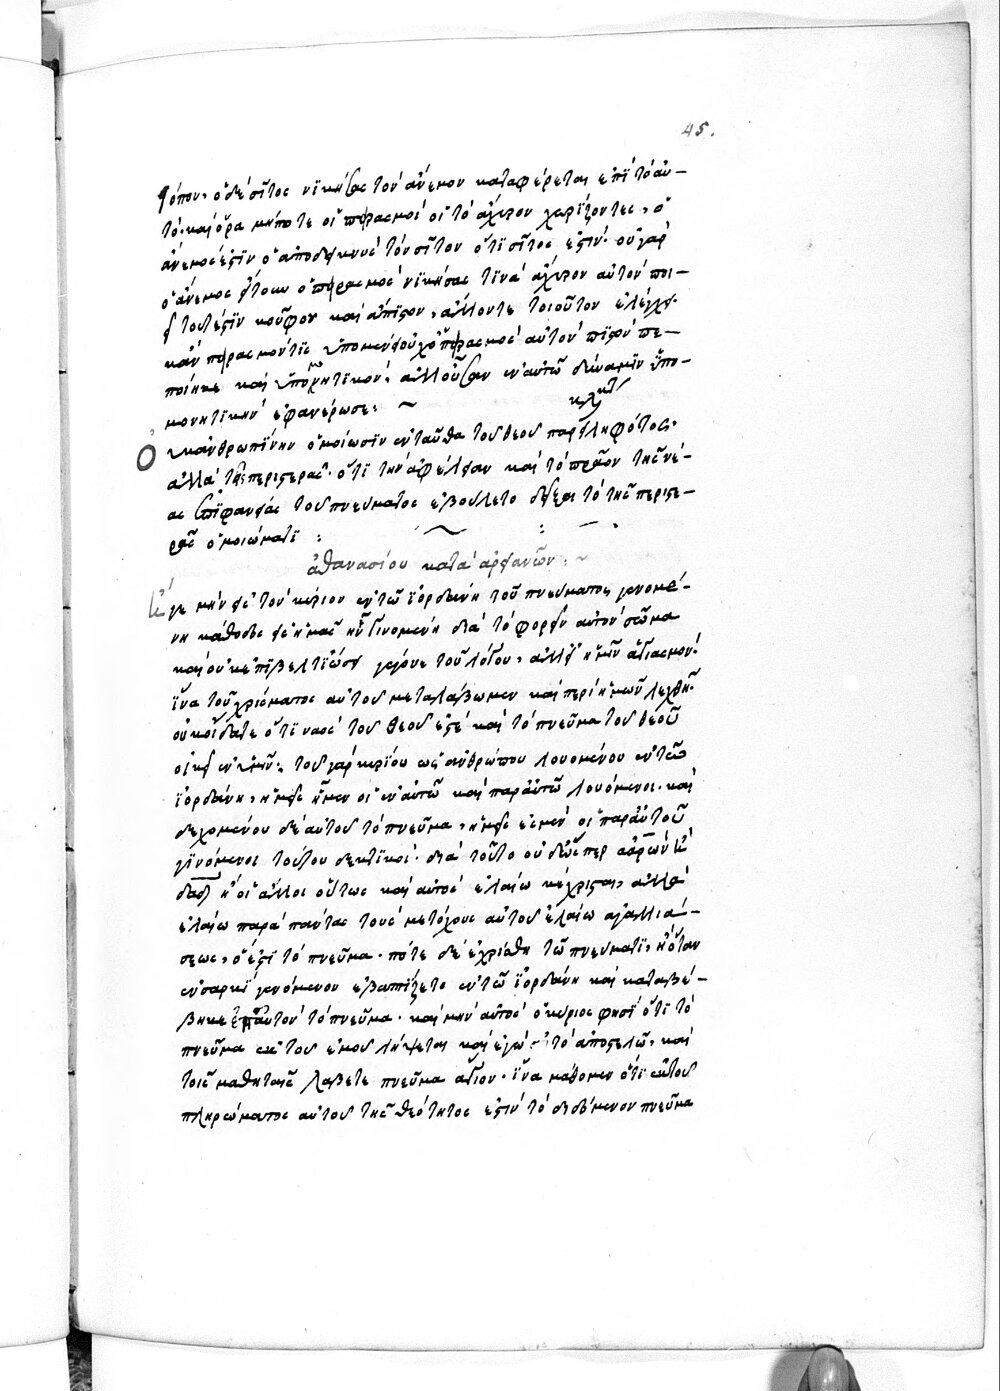 45.
τόπου, ὁ δὲ σῖτος νικήσας τὸν ἄνεμον καταφέρεται ἐπὶ τὸ αὐ-
τό· καὶ ὅρα μήποτε οἱ πειρασμοὶ οἱ τὸ ἄχυρον χωρίζοντες, ὁ
ἄνεμος ἐστὶν ὁ ἀποδεικνὺς τὸν σῖτον ὅτι σῖτος ἐστίν· οὐ γὰρ
ὁ ἄνεμος ἤτοι ὁ πειρασμὸς νικήσας τινὰ ἄχυρον αὐτὸν ποι-
εῖ τουτέστιν κοῦφον καὶ ἄπιστον, ἀλλ' ὄντε τοιοῦτον ἐλέγχει·
κἂν πειρασμόν τις ὑπομένει οὐχ ὁ πειρασμὸς αὐτὸν πιστὸν πε-
ποίηκε καὶ ὑπομονητικόν, ἀλλ' οὖσαν ἐν αὐτῶ δύναμιν ὑπο-
μονητικὴν ἐφανέρωσε:
Οὐκ ἀνθρωπίνην ὁμοίωσιν ἐνταῦθα τοῦ θεοῦ παρειληφότος·
ἀλλὰ τῆς περιστερᾶς· ὅτι τὴν ἀφέλειαν καὶ τὸ πρᾶον τῆς νέ-
ας ἐπιφανείας τοῦ πνεύματος ἐβούλετο δεῖξαι τὸ τῆς περιστε-
ρᾶς ὁμοιώματι:
ἀθανασίου κατὰ ἀρειανῶν:
Εἴ γε μὴν εἰς τὸν κύριον ἐν τῶ ἰορδάνη τοῦ πνεύματος γενομέ-
νη κάθοδος εἰς ἡμᾶς ἦν γινομένη διὰ τὸ φορεῖν αὐτὸν σῶμα
καὶ οὐκ ἐπὶ βελτιώσει γέγονε τοῦ λόγου, ἀλλ' εἰς ἡμῶν ἁγιασμόν·
ἵνα τοῦ χρίσματος αὐτοῦ μεταλάβωμεν καὶ περὶ ἡμῶν λεχθῆ·
οὐκ οἴδατε ὅτι ναὸς τοῦ θεοῦ ἐστὲ καὶ τὸ πνεῦμα τοῦ θεοῦ
οἰκεῖ ἐν ὑμῖν; τοῦ γὰρ κυρίου ὡς ἀνθρώπου λουομένου ἐν τῶ
ἰορδάνη, ἡμεῖς ἦμεν οἱ ἐν αὐτῶ καὶ παρ' αὐτῶ λουόμενοι· καὶ
δεχομένου δὲ αὐτοῦ τὸ πνεῦμα, ἡμεῖς ἐσμὲν οἱ παρ' αὐτοῦ
γινόμενοι τούτου δεκτικοί· διὰ τοῦτο οὐδ' ὥσπερ ἀαρὼν ἢ
δαδ ἢ οἱ ἄλλοι οὕτως καὶ αὐτὸς ἐλαίω κέχρισται, ἀλλὰ
ἐλαίω παρὰ πάντας τοὺς μετόχους αὐτοῦ ἐλαίω ἀγαλλιά-
σεως, ὅ ἐστι τὸ πνεῦμα· πότε δὲ ἐχρίσθη τῶ πνεύματι, ἢ ὅταν
ἐν σαρκὶ γενόμενον ἐβαπτίζετο ἐν τῶ ἰορδάνη καὶ καταβέ-
βηκε ἐπ' αὐτὸν τὸ πνεῦμα· καὶ μὴν αὐτὸς ὁ κύριος φησὶ ὅτι τὸ
πνεῦμα ἐκ τοῦ ἐμοῦ λήψεται καὶ ἐγὼ αὐτὸ ἀποστελῶ, καὶ
τοῖς μαθηταῖς λάβετε πνεῦμα ἅγιον· ἵνα μάθομεν ὅτι ἐκ τοῦ
πληρώματος αὐτοῦ τῆς θεότητος ἐστὶν τὸ διδόμενον πνεῦμα